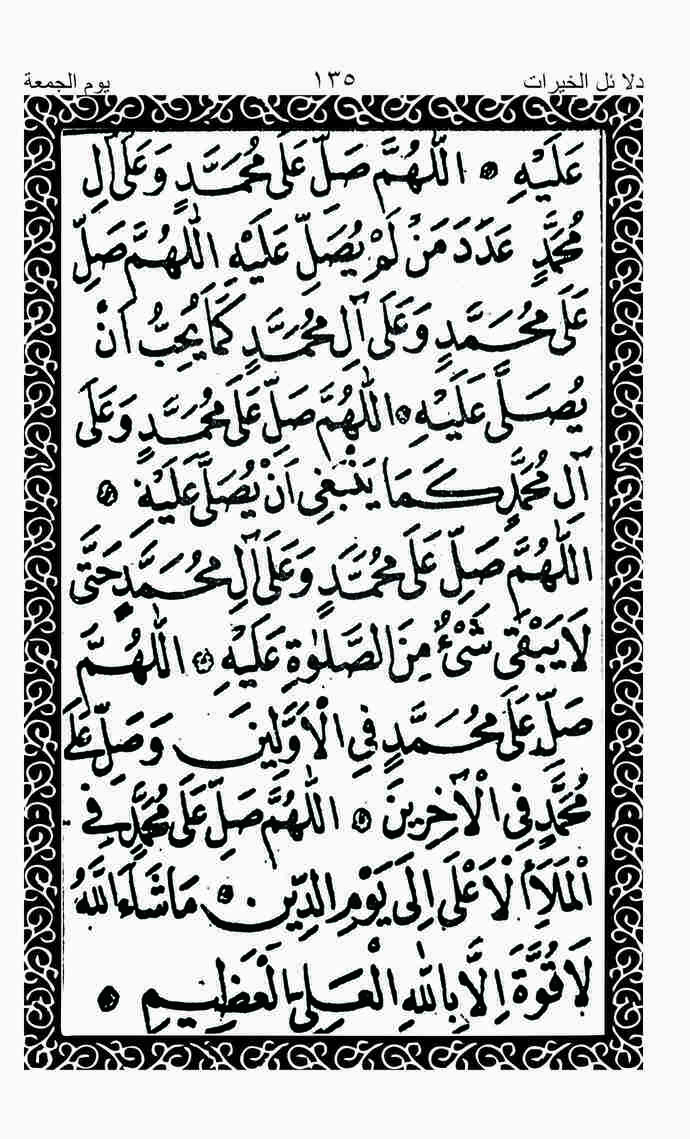 دلائل الخيرات ١٣٥ يوم الجمعة
عَلَيْهِ ۞ اَللّٰهُمَّ صَلِّ عَلٰى مُحَمَّدٍ وَعَلٰى اٰلِ
مُحَمَّدٍ عَدَدَ مَنْ لَمْ يُصَلِّ عَلَيْهِ اَللّٰهُمَّ صَلِّ
عَلٰى مُحَمَّدٍ وَعَلٰى اٰلِ مُحَمَّدٍ كَمَا يُحِبُّ اَنْ
يُصَلّٰى عَلَيْهِ ۞ اَللّٰهُمَّ صَلِّ عَلٰى مُحَمَّدٍ وَعَلٰى
اٰلِ مُحَمَّدٍ كَمَا يَنْبَغِى اَنْ يُصَلّٰى عَلَيْهِ ۞
اَللّٰهُمَّ صَلِّ عَلٰى مُحَمَّدٍ وَعَلٰى اٰلِ مُحَمَّدٍ حَتّٰى
لَا يَبْقٰى شَىْءٌ مِنَ الصَّلٰوةِ عَلَيْهِ ۞ اَللّٰهُمَّ
صَلِّ عَلٰى مُحَمَّدٍ فِى الْاَوَّلِينَ وَصَلِّ عَلٰى
مُحَمَّدٍ فِى الْاٰخِرِينَ ۞ اَللّٰهُمَّ صَلِّ عَلٰى مُحَمَّدٍ فِى
الْمَلَأِ الْاَعْلٰى اِلٰى يَوْمِ الدِّينِ ۞ مَا شَاءَ اللّٰهُ
لَا قُوَّةَ اِلَّا بِاللّٰهِ الْعَلِىِّ الْعَظِيمِ ۞